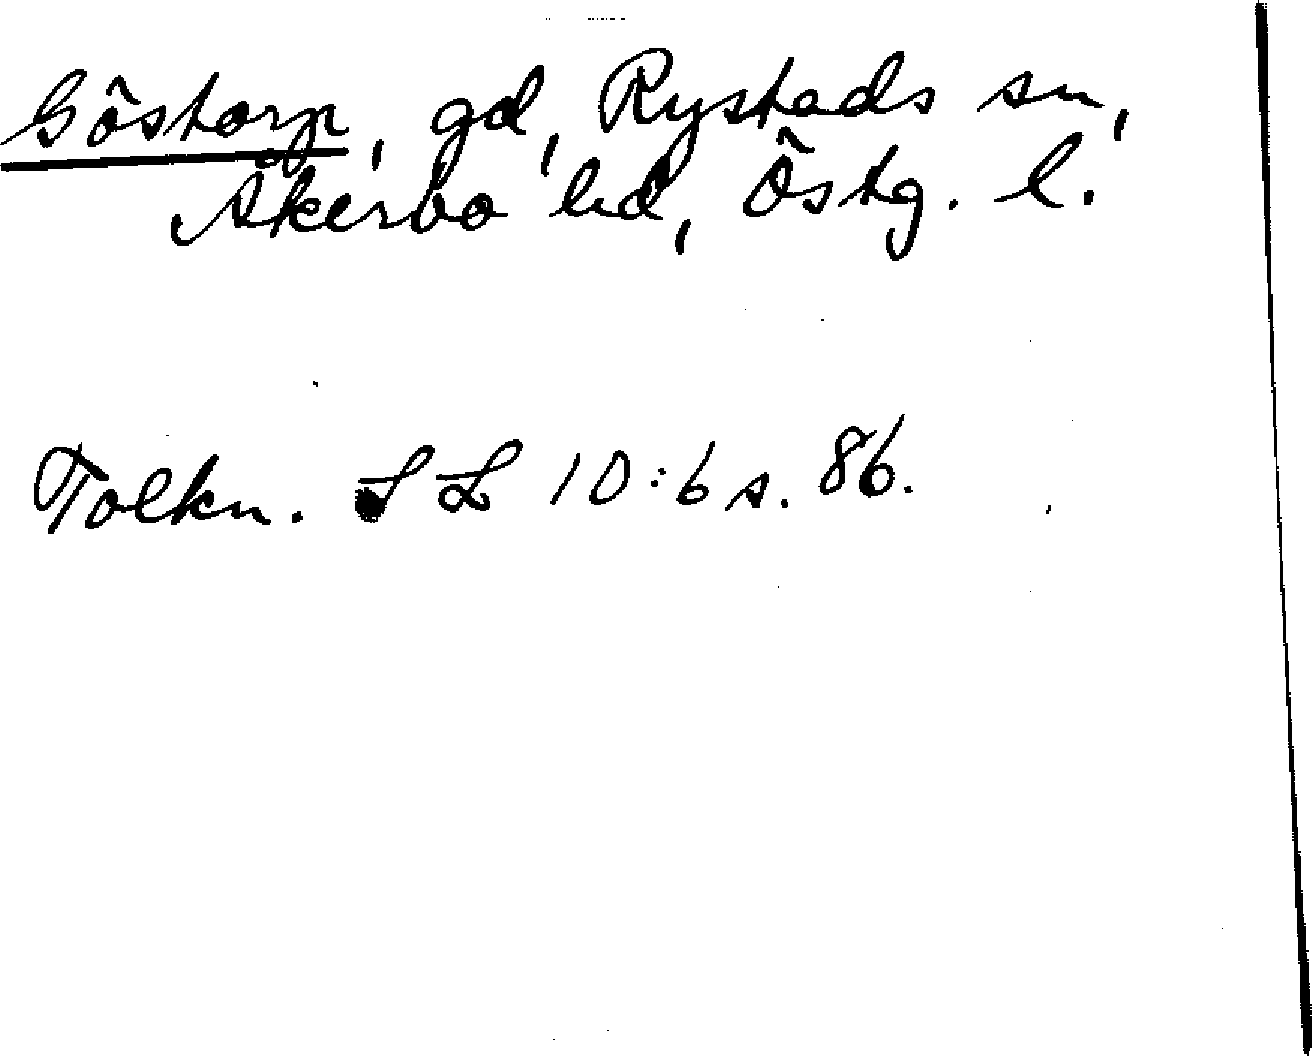 Göstorp, gd, Rystads sn,
Åkerbo hd, Östg. l.
Tolkn. SL 10:6 s. 86.